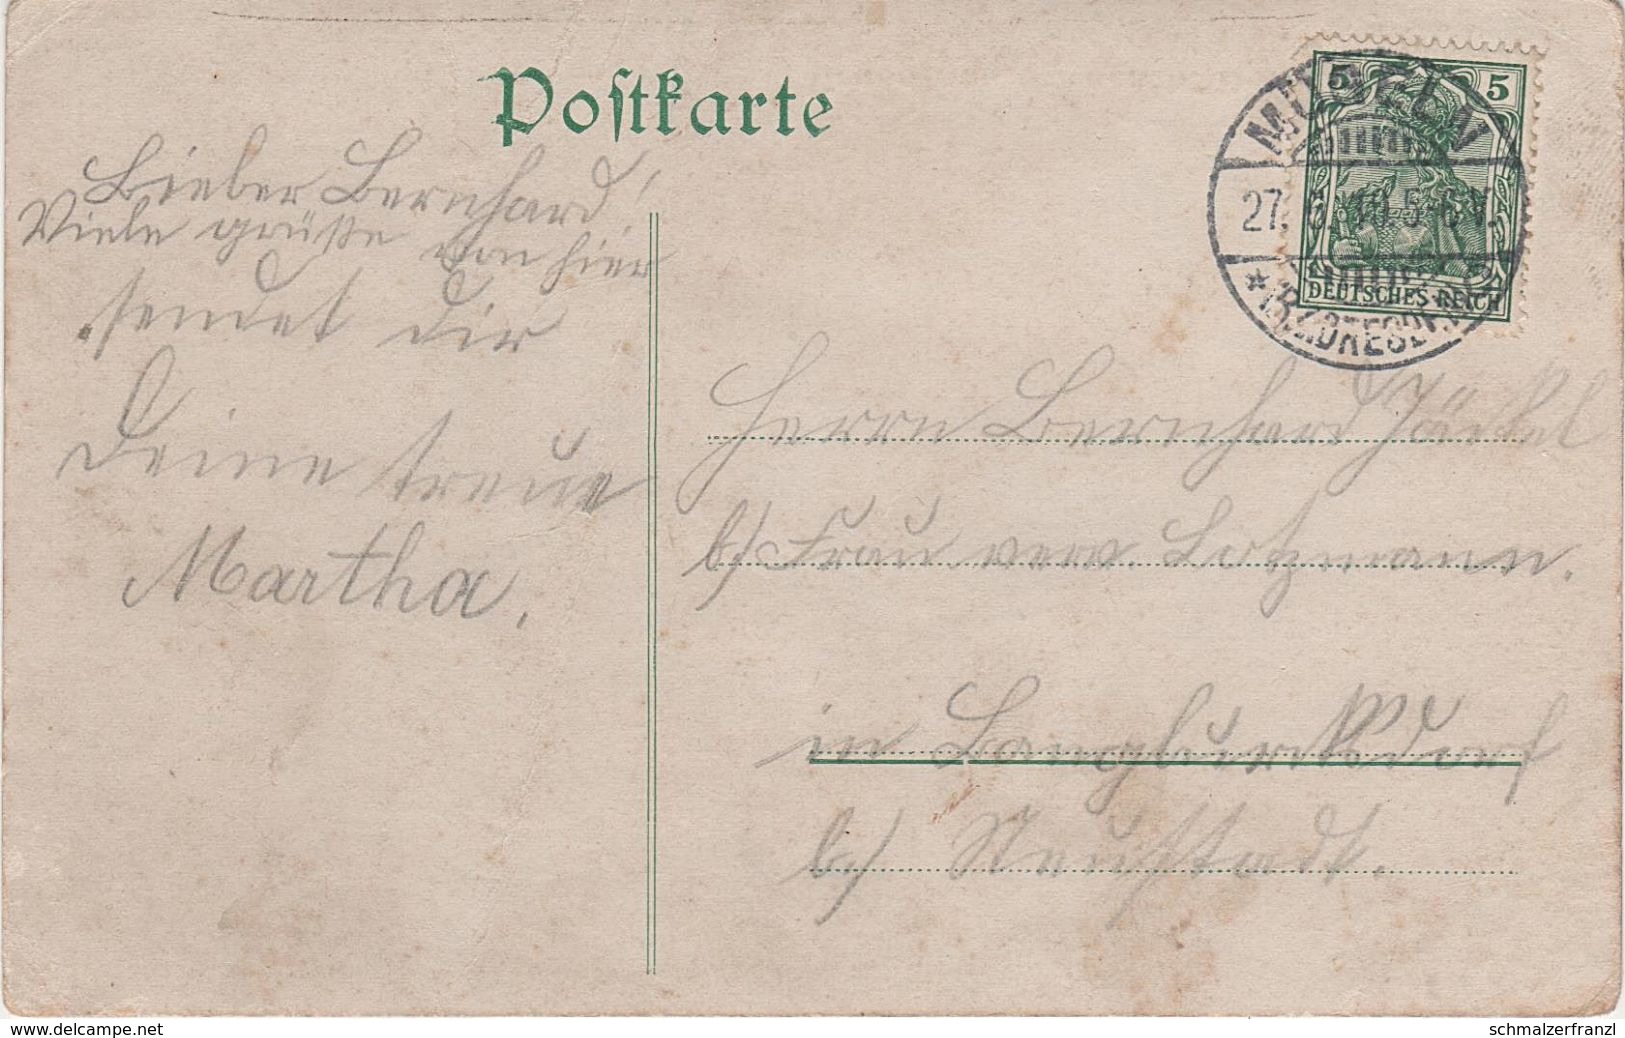 Postkarte
Lieber Bernhard!
Viele grüße von hier
sendet dir
Deine treue
Martha.
5 5
DEUTSCHES REICH
MÜGELN
27. 10. 5-6 V.
* (BZ. DRESDEN)
Herrn Bernhard Jäckel
b/ Frau verw. Lotzmann.
in Langburkersdorf
b/ Neustadt.
www.delcampe.net
schmalzerfranzl